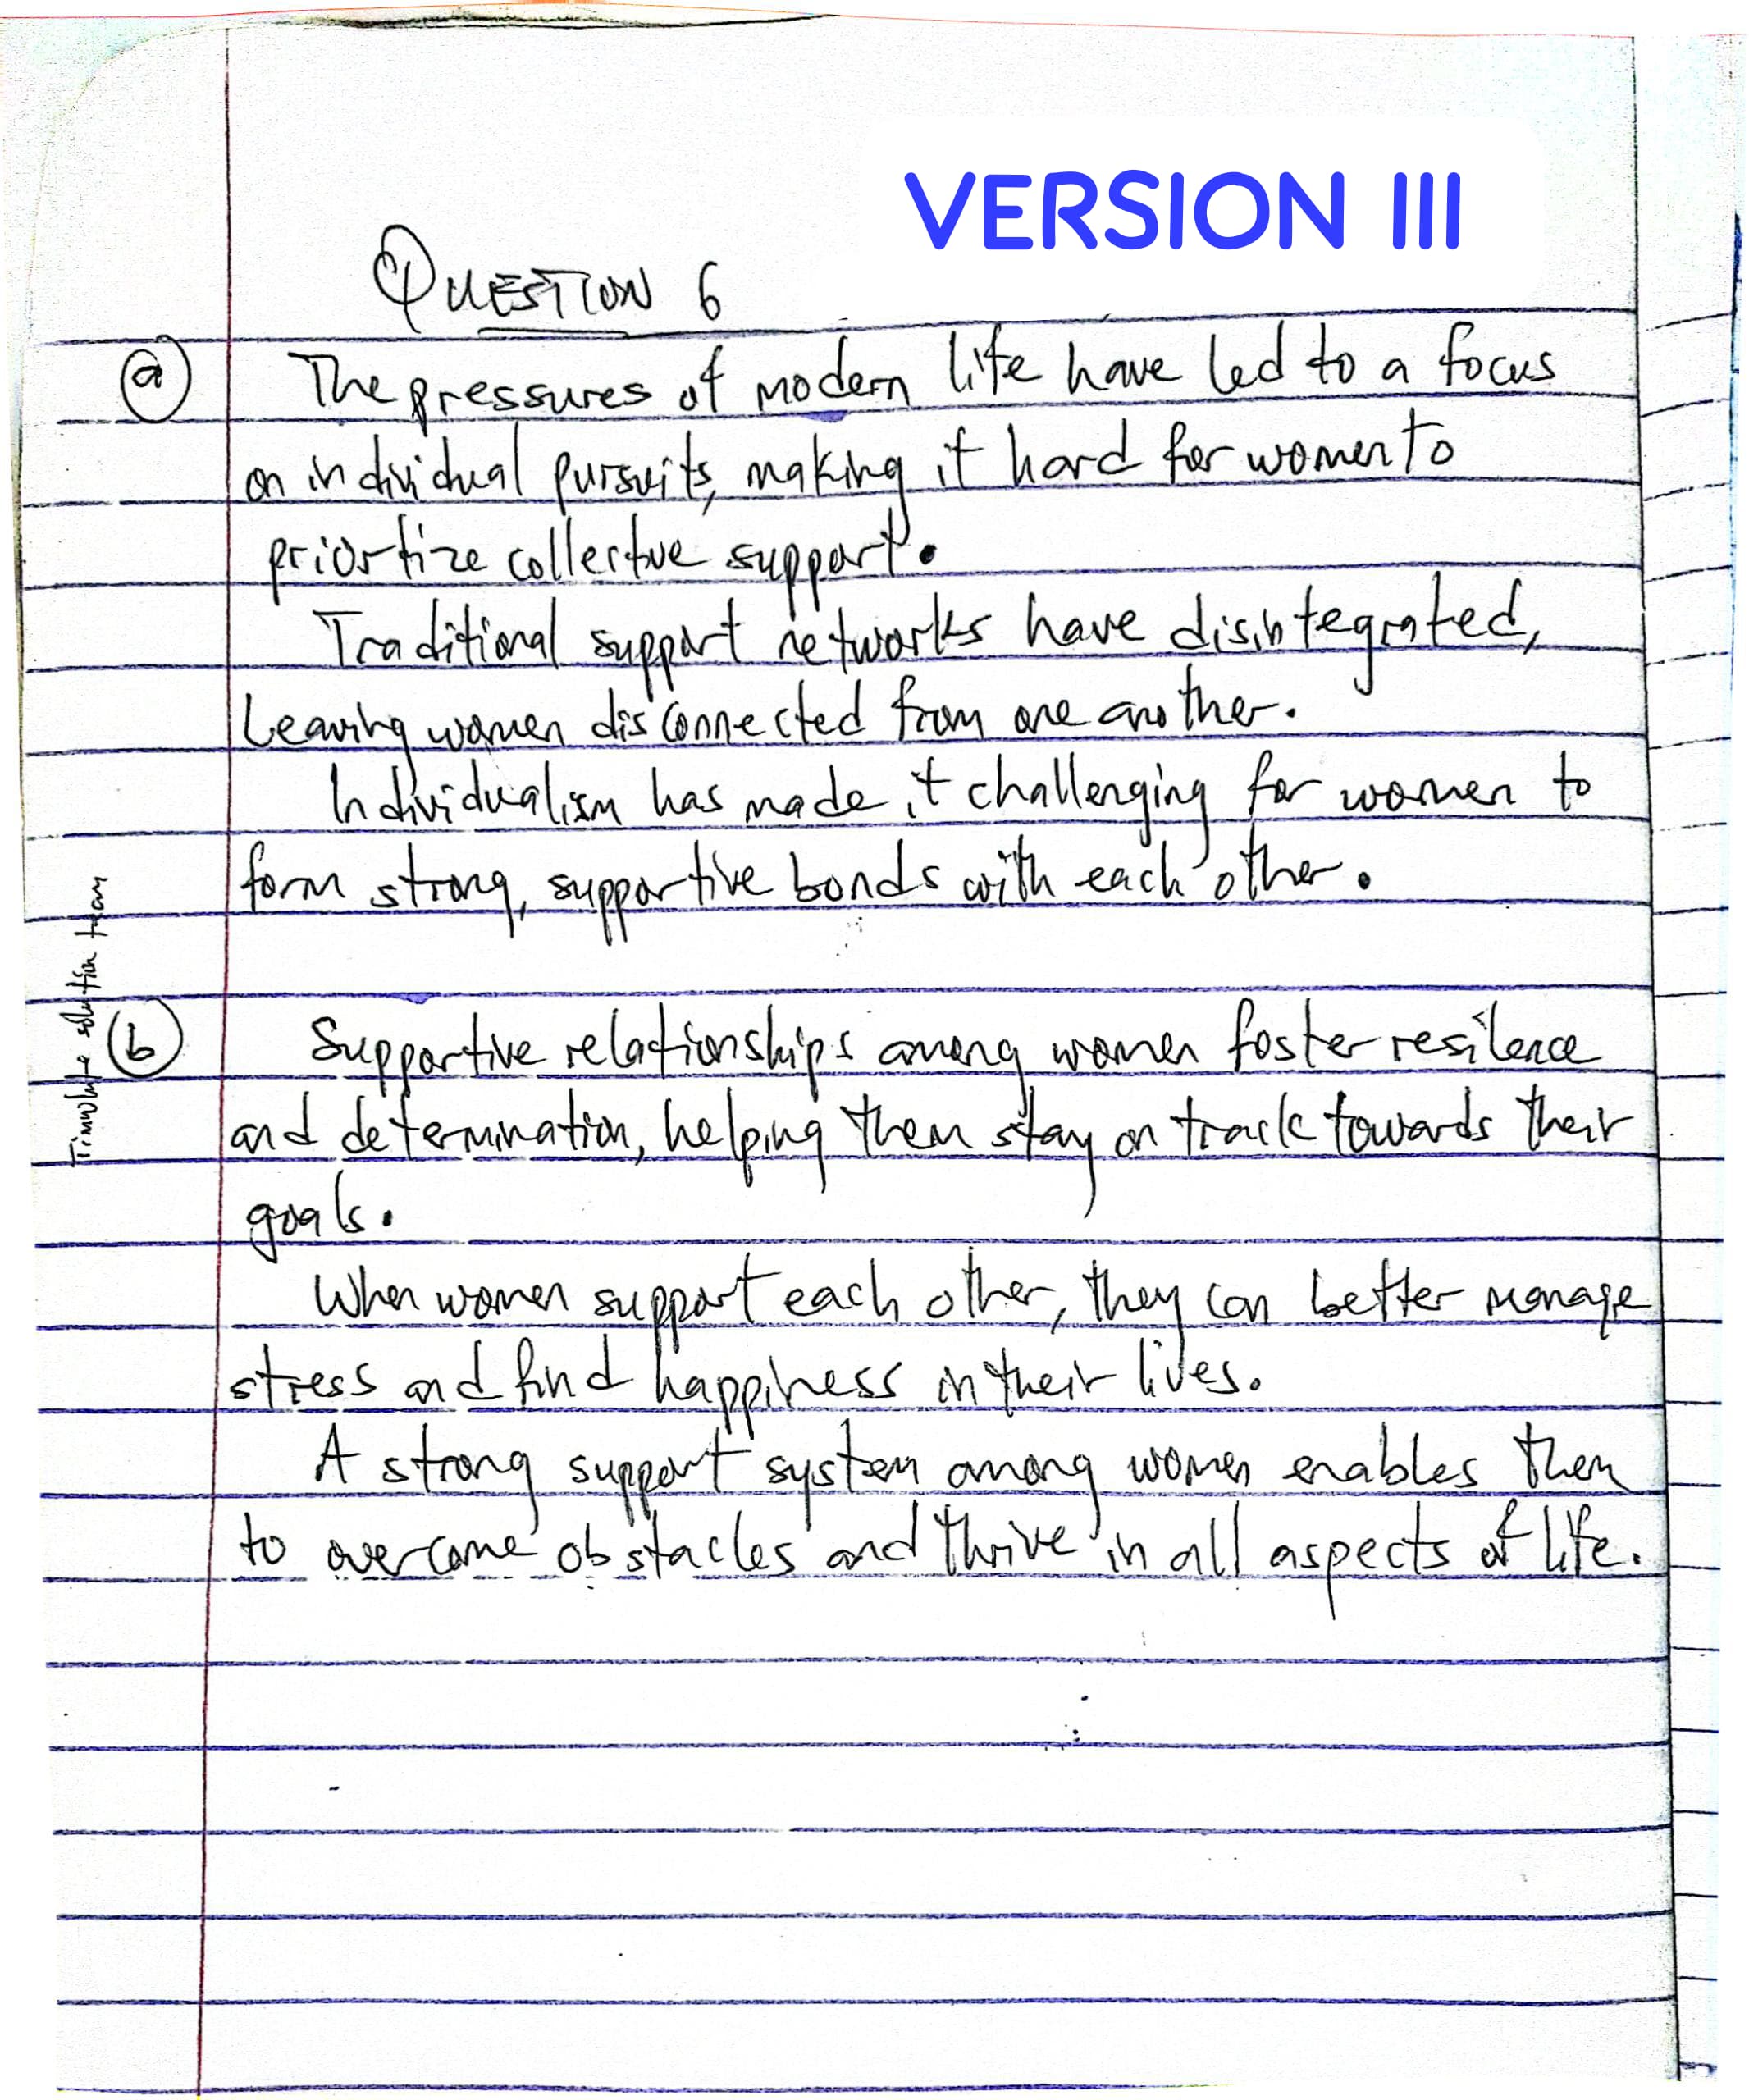 VERSION III
QUESTION 6
(a) The pressures of modern life have led to a focus
on individual pursuits, making it hard for women to
priortize collective support.
Traditional support networks have disintegrated,
Leaving women disconnected from one another.
Individualism has made it challenging for women to
form strong, supportive bonds with each other.
(b) Supportive relationships among women foster resilence
and determination, helping them stay on track towards their
goals.
When women support each other, they can better manage
stress and find happiness in their lives.
A strong support system among women enables them
to overcome obstacles and thrive in all aspects of life.
solution team